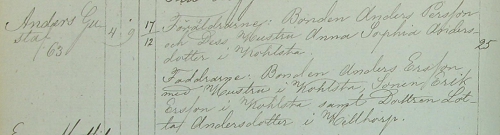 Anders Gu
sta
63.
4 9 17/12 Föräldrarne: Bonden Anders Persson
och dess Hustru Anna Sophia Anders-
dotter i Kohlsta. 25
Faddrarne: Bonden Anders Ersson
med Hustru i Kohlsta, Sonen Erik
Ersson i Kohlsta samt Dottren Lot-
ta Andersdotter i